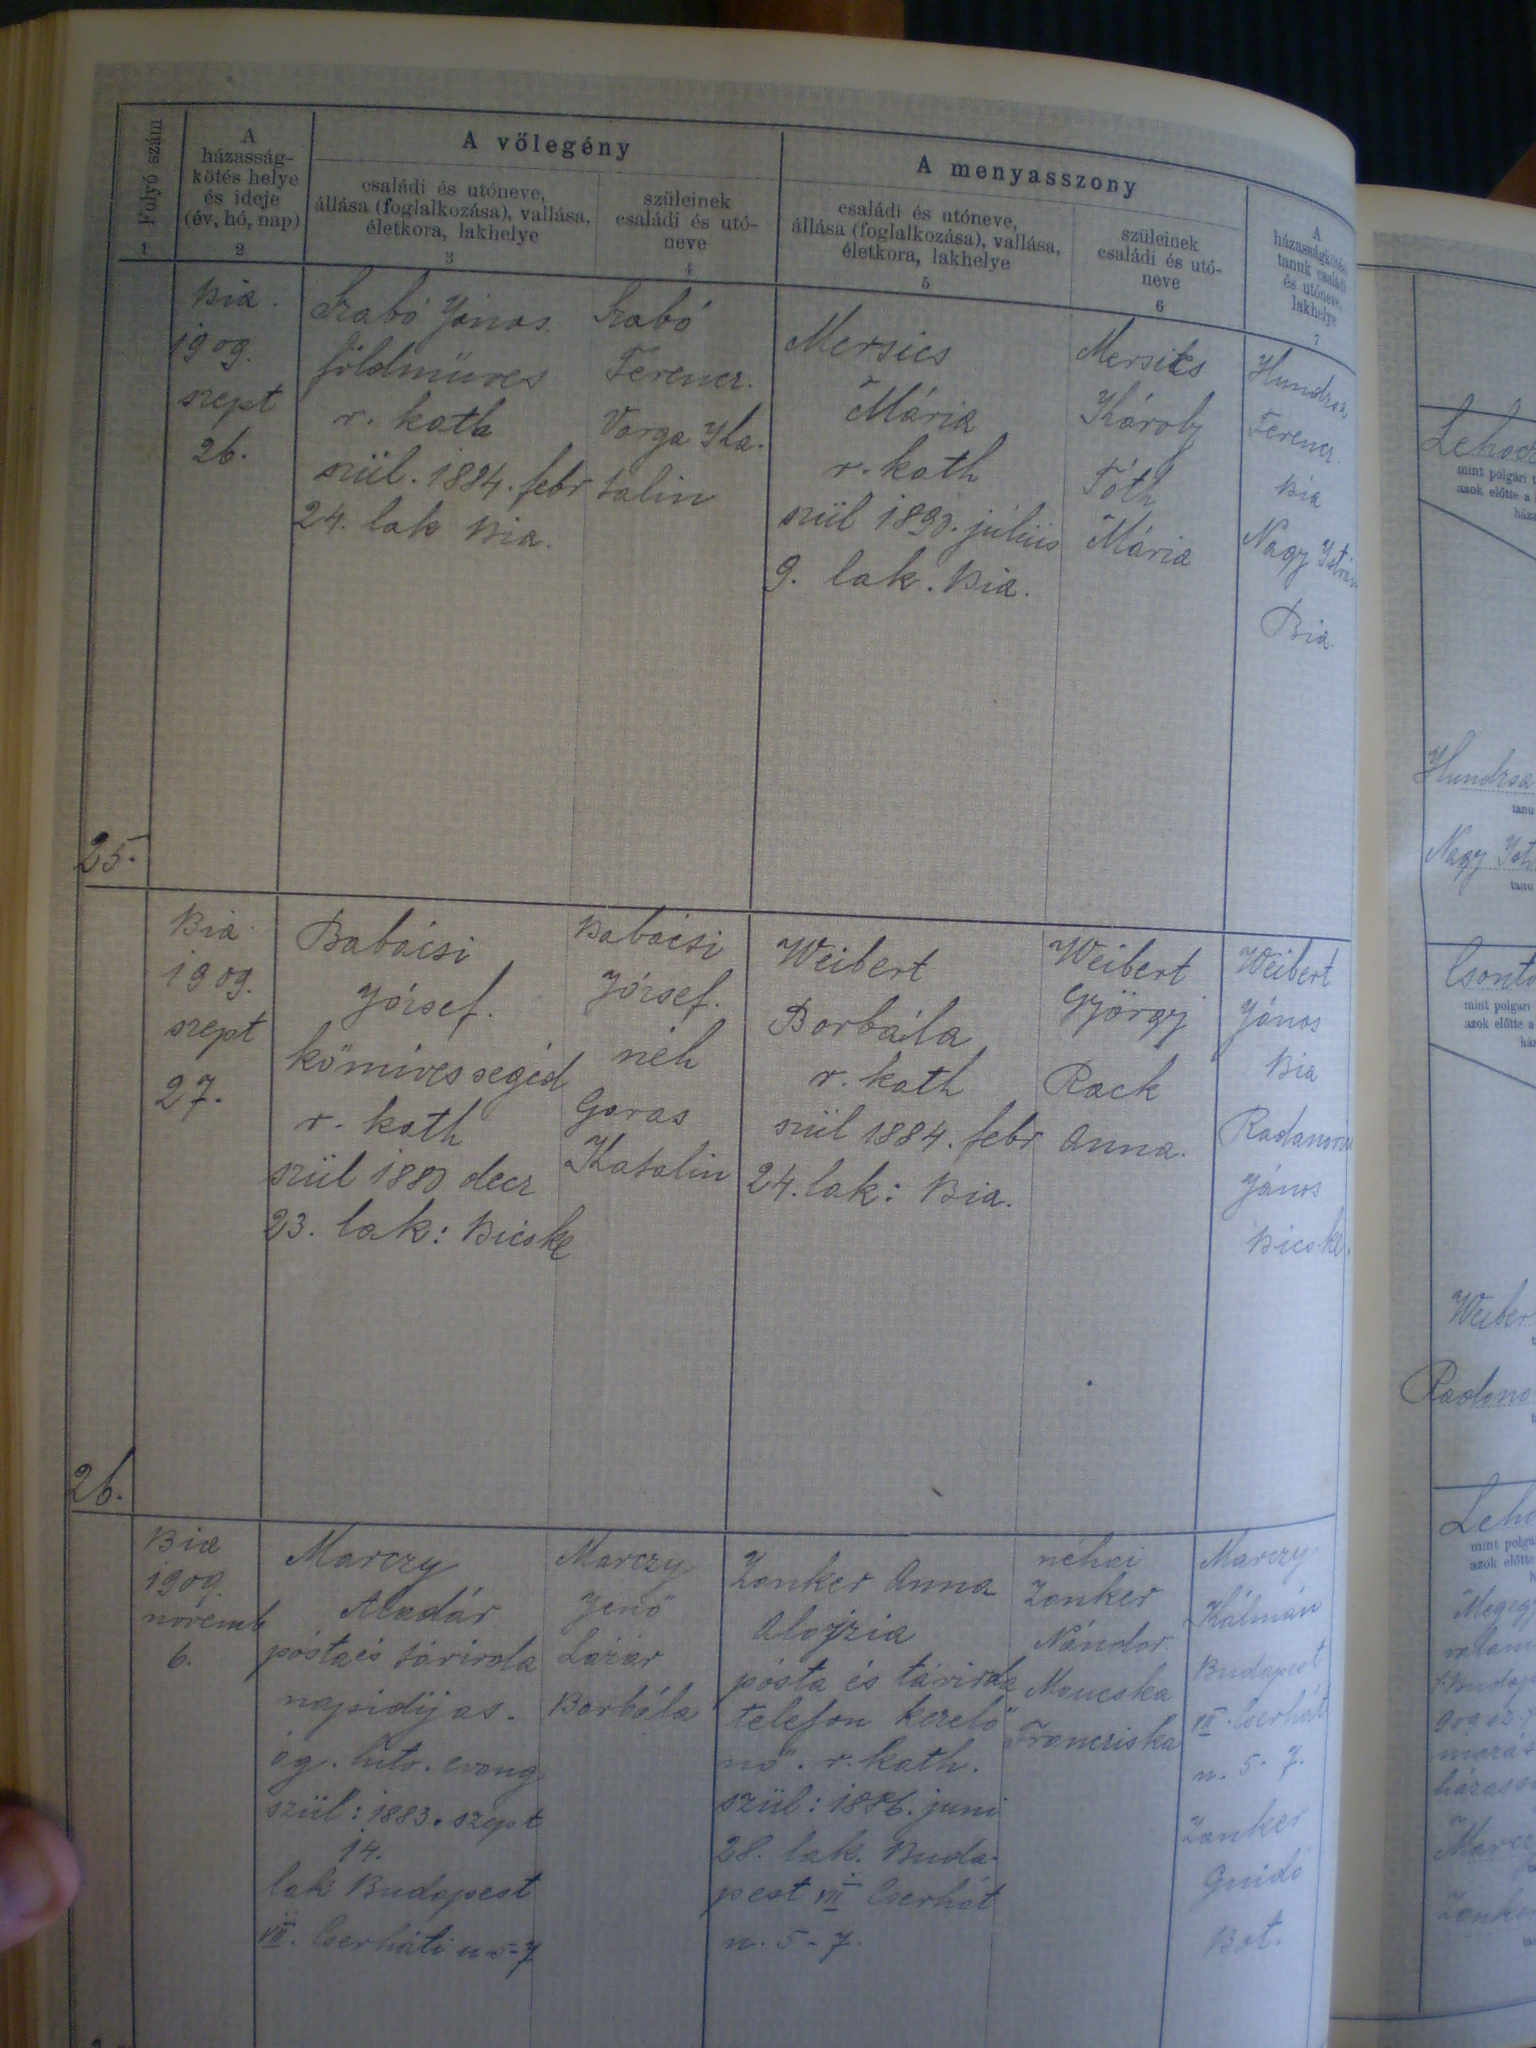 Folyó szám
A
házasság-
kötés helye
és ideje
(év, hó, nap)
A vőlegény
családi és utóneve,
állása (foglalkozása), vallása,
életkora, lakhelye
szüleinek
családi és utó-
neve
A menyasszony
családi és utóneve,
állása (foglalkozása), vallása,
életkora, lakhelye
szüleinek
családi és utó-
neve
A
házasságkötési
tanuk családi
és utóneve,
lakhelye
1
2
3
4
5
6
7
25.
Bia.
1909.
szept
26.
Szabó János
földmüves
r. kath
szül. 1884. febr
24. lak Bia.
Szabó
Ferencz.
Varga Ka-
talin
Mersics
Mária
r. kath
szül 1890. július
9. lak. Bia.
Mersics
Károly
Tóth
Mária
Hundzsa
Ferencz.
Bia
Nagy István
Bia.
26.
Bia
1909.
szept
27.
Babácsi
József.
kőmives segéd
r. kath
szül 1880 decz
23. lak: Bicske
Babácsi
József.
néh
Garas
Katalin
Weibert
Borbála
r. kath
szül 1884. febr
24. lak: Bia.
Weibert
György
Rack
Anna.
Weibert
János
Bia
János
Bicske.
Bia
1909.
novemb
6.
Marczy
Aladár
pósta és távirda
napidijas.
ág. hitv. evang
szül: 1883. szept
14.
lak Budapest
VII. Cserháti u 5-7
Marczy
Jenő
Lázár
Borbála
Zanker Anna
Alojzia
pósta és távirda
telefon kezelő
nő. r. kath.
szül: 1886. juni
28. lak. Buda-
pest VII Cserhát
u. 5-7.
néhai
Zanker
Nándor.
Mancska
Francziska
Marczy
Kálmán
Budapest
VII. Cserhát
u. 5-7.
Zanker
Guidó
Bot.
mint polgári
azok előtte a
Hundzsa
tanu
Nagy
tanu
mint polgári
azok előtte a
mint polgá
azok előtte